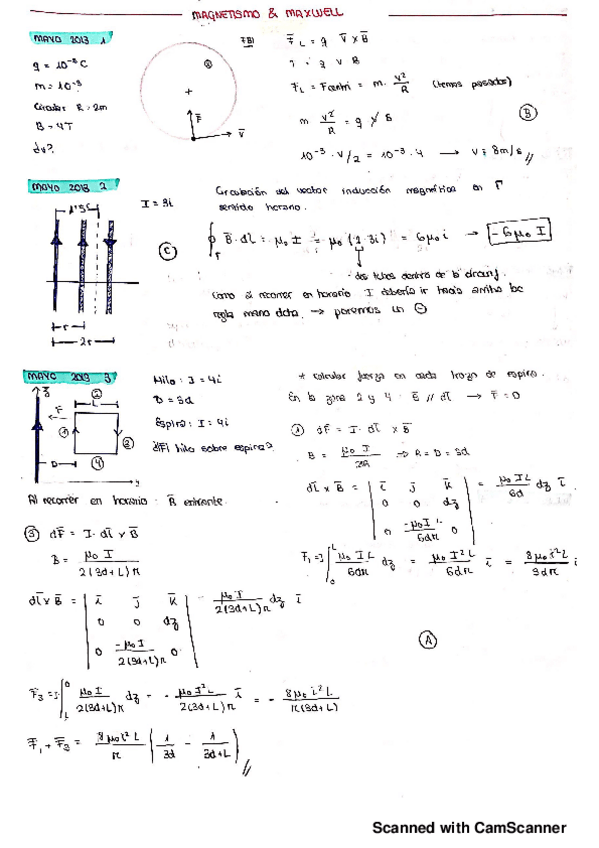 MAGNETISMO & MAXWELL
MAYO 2013 1
q = 10⁻³ C
m = 10⁻³
Circular R = 2m
B = 4T
dv?
F
V
F̄L = q V̄ x B̄
q V B
FL = Fcentri = m · V²/R (temas pasados)
m V²/R = q V B
10⁻³ · V/2 = 10⁻³ · 4 → V = 8m/s
B
MAYO 2013 2
I = 3i
r
2r
C
Circulación del vector inducción magnética en Γ
sentido horario.
∮Γ B̄ · dl = μ₀ I = μ₀ (2 · 3i) = 6μ₀ i → -6μ₀ I
dos tubos dentro de
Como al recorrer en horario I debería ir hacia arriba
regla mano dcha → ponemos un ⊖
MAYO 2013 3
Hilo : I = 4i
D = 3d
Espira : I = 4i
¿F| hilo sobre espira?
z
F
L
D
y
1
2
3
4
Al recorrer en horario : B̄ entrante.
* calcular fuerza en cada trozo de espira.
En la 2 y 4 : B̄ // dl → F̄ = 0
① dF̄ = I · dl x B̄
B = μ₀ I / 2πR ⇒ R = D = 3d
dl x B̄ = | i j k ; 0 0 dz ; 0 -μ₀I/6dπ 0 | = μ₀ I L / 6d dz i
F₁ = ∫₀ᴸ μ₀ I L / 6dπ dz = μ₀ I² L / 6dπ i = 8μ₀ i² L / 3dπ i
A
③ dF̄ = I · dl x B̄
B = μ₀ I / 2(3d+L)π
dl x B̄ = | i j k ; 0 0 dz ; 0 -μ₀ I / 2(3d+L)π 0 | μ₀ I / 2(3d+L)π dz i
F̄₃ = I ∫ μ₀ I / 2(3d+L)π dz = - μ₀ I² L / 2(3d+L)π i = - 8μ₀ i² L / π(3d+L)
F̄₁ + F̄₃ = 8μ₀ i² L / π ( 1/3d - 1/3d+L )
Scanned with CamScanner